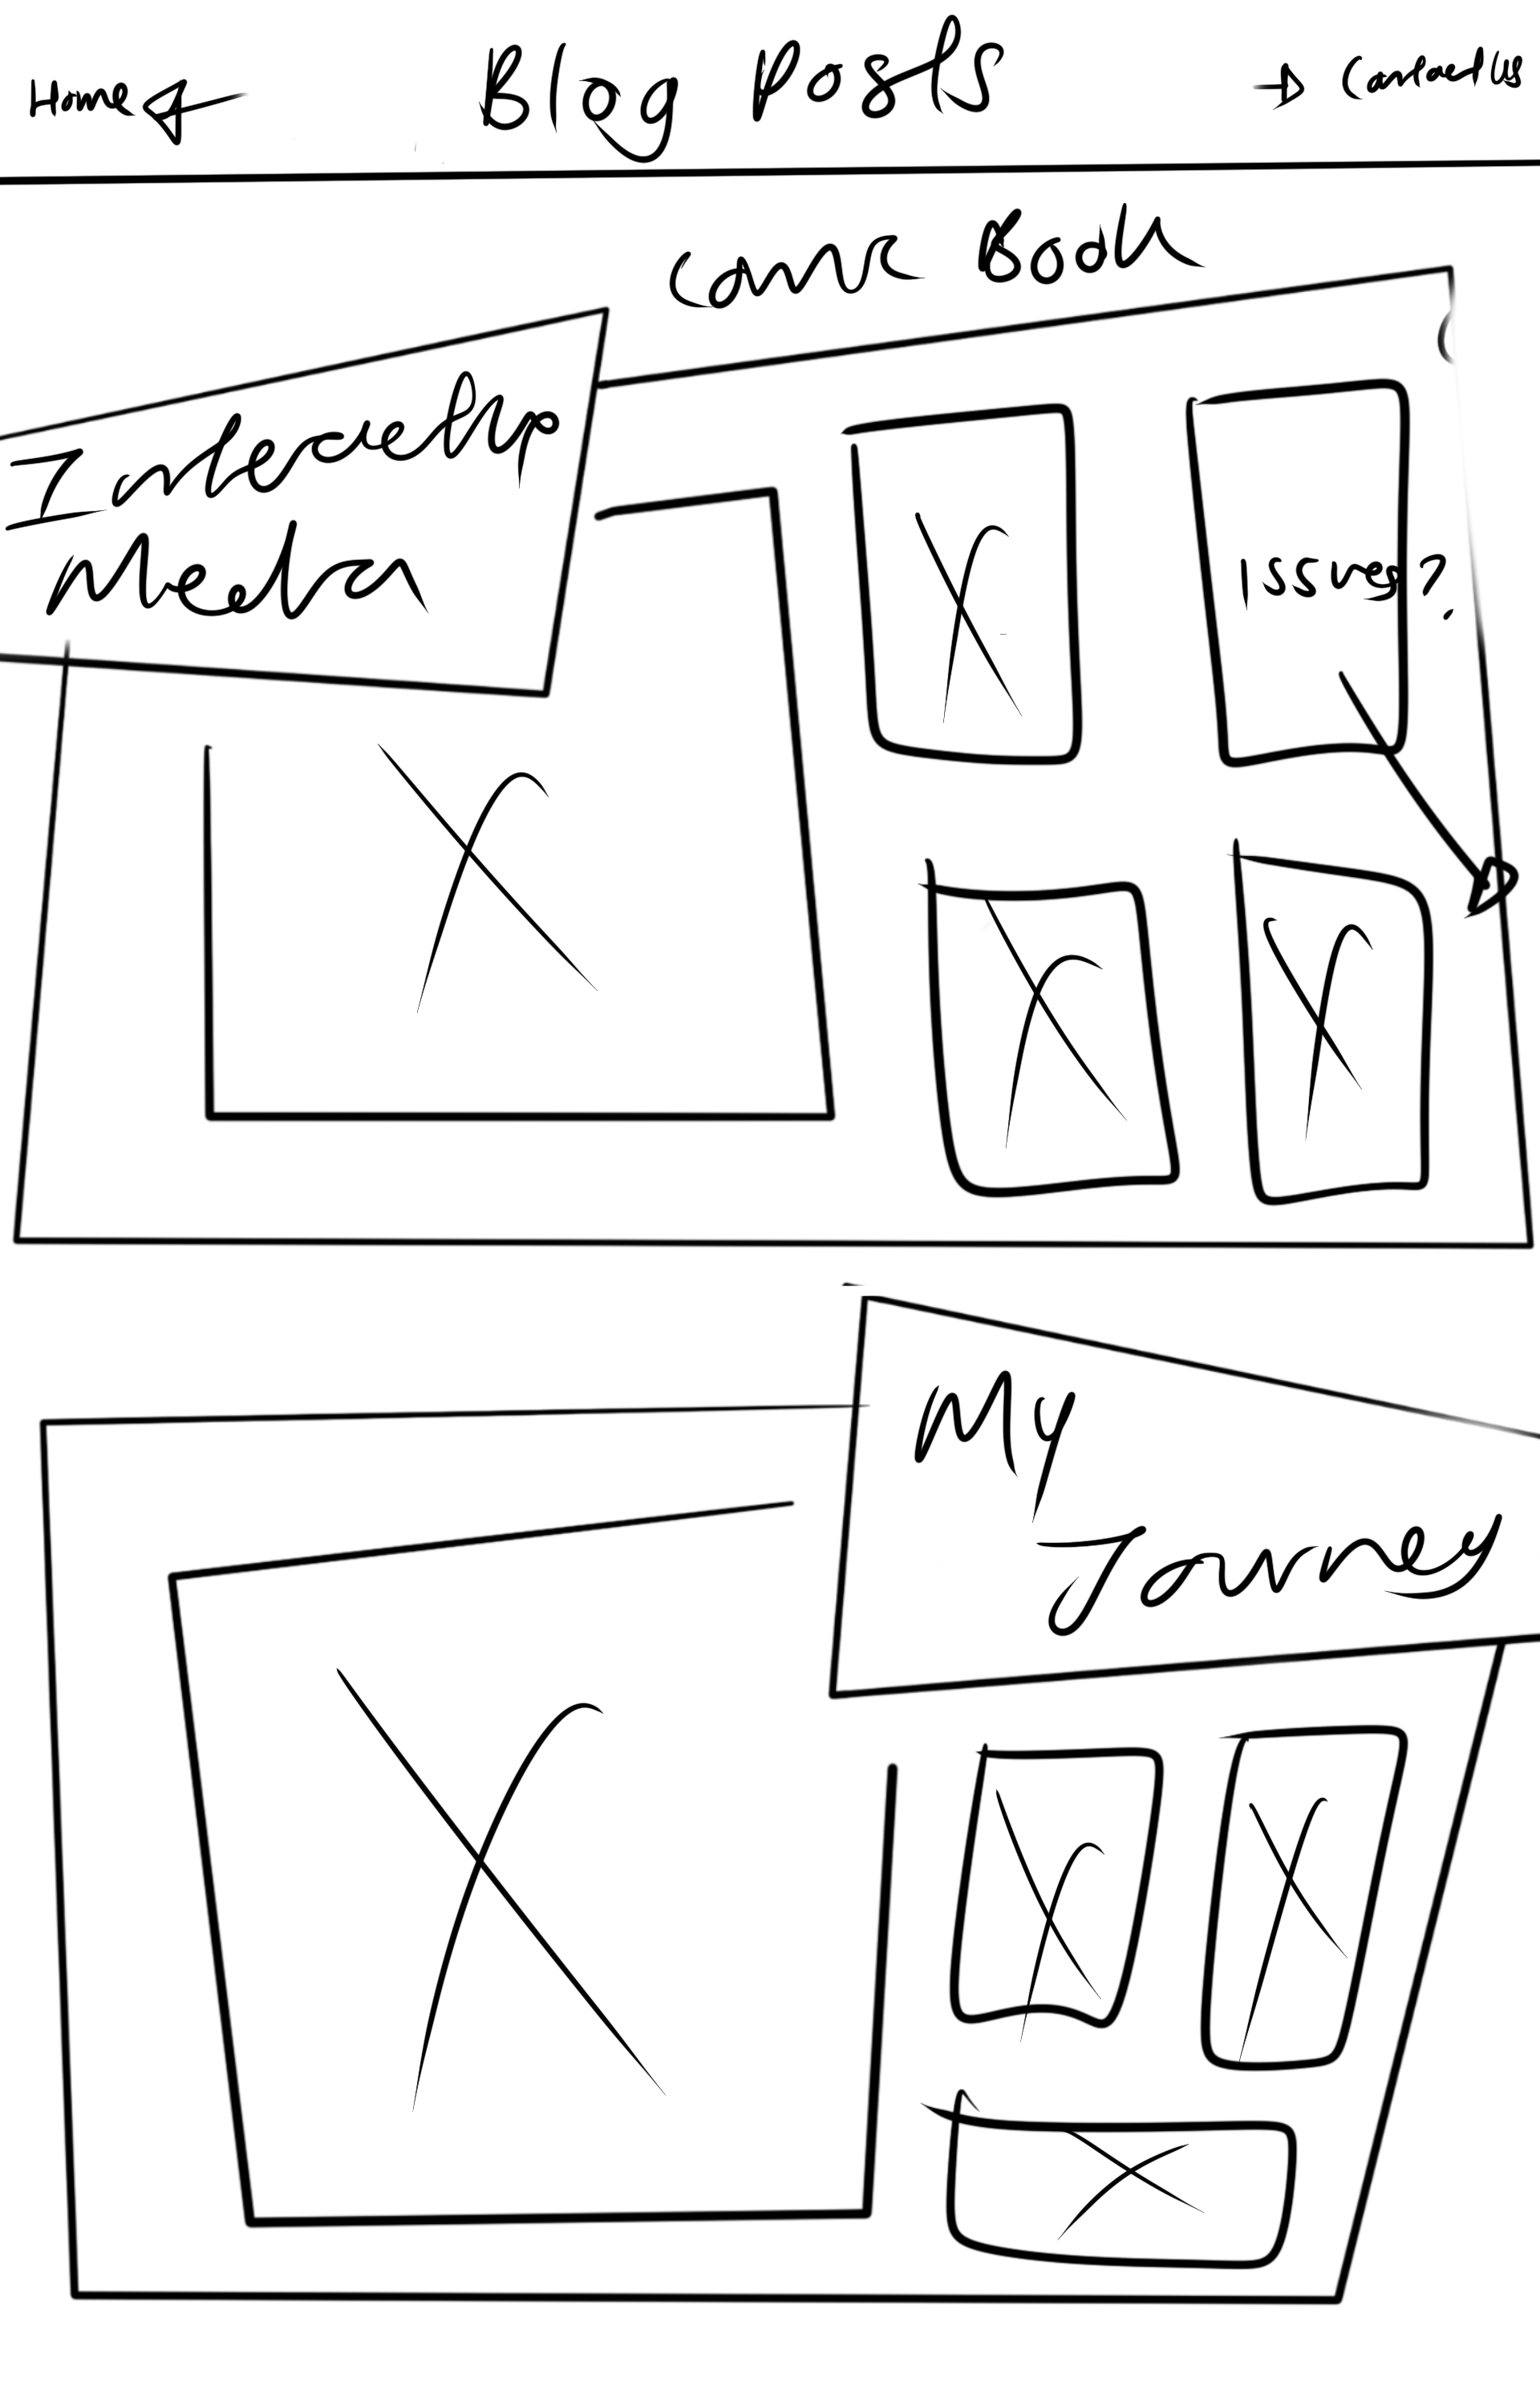 Home
Blog Posts
Contact Us
Comic Book
Media
issues?
My
Journey